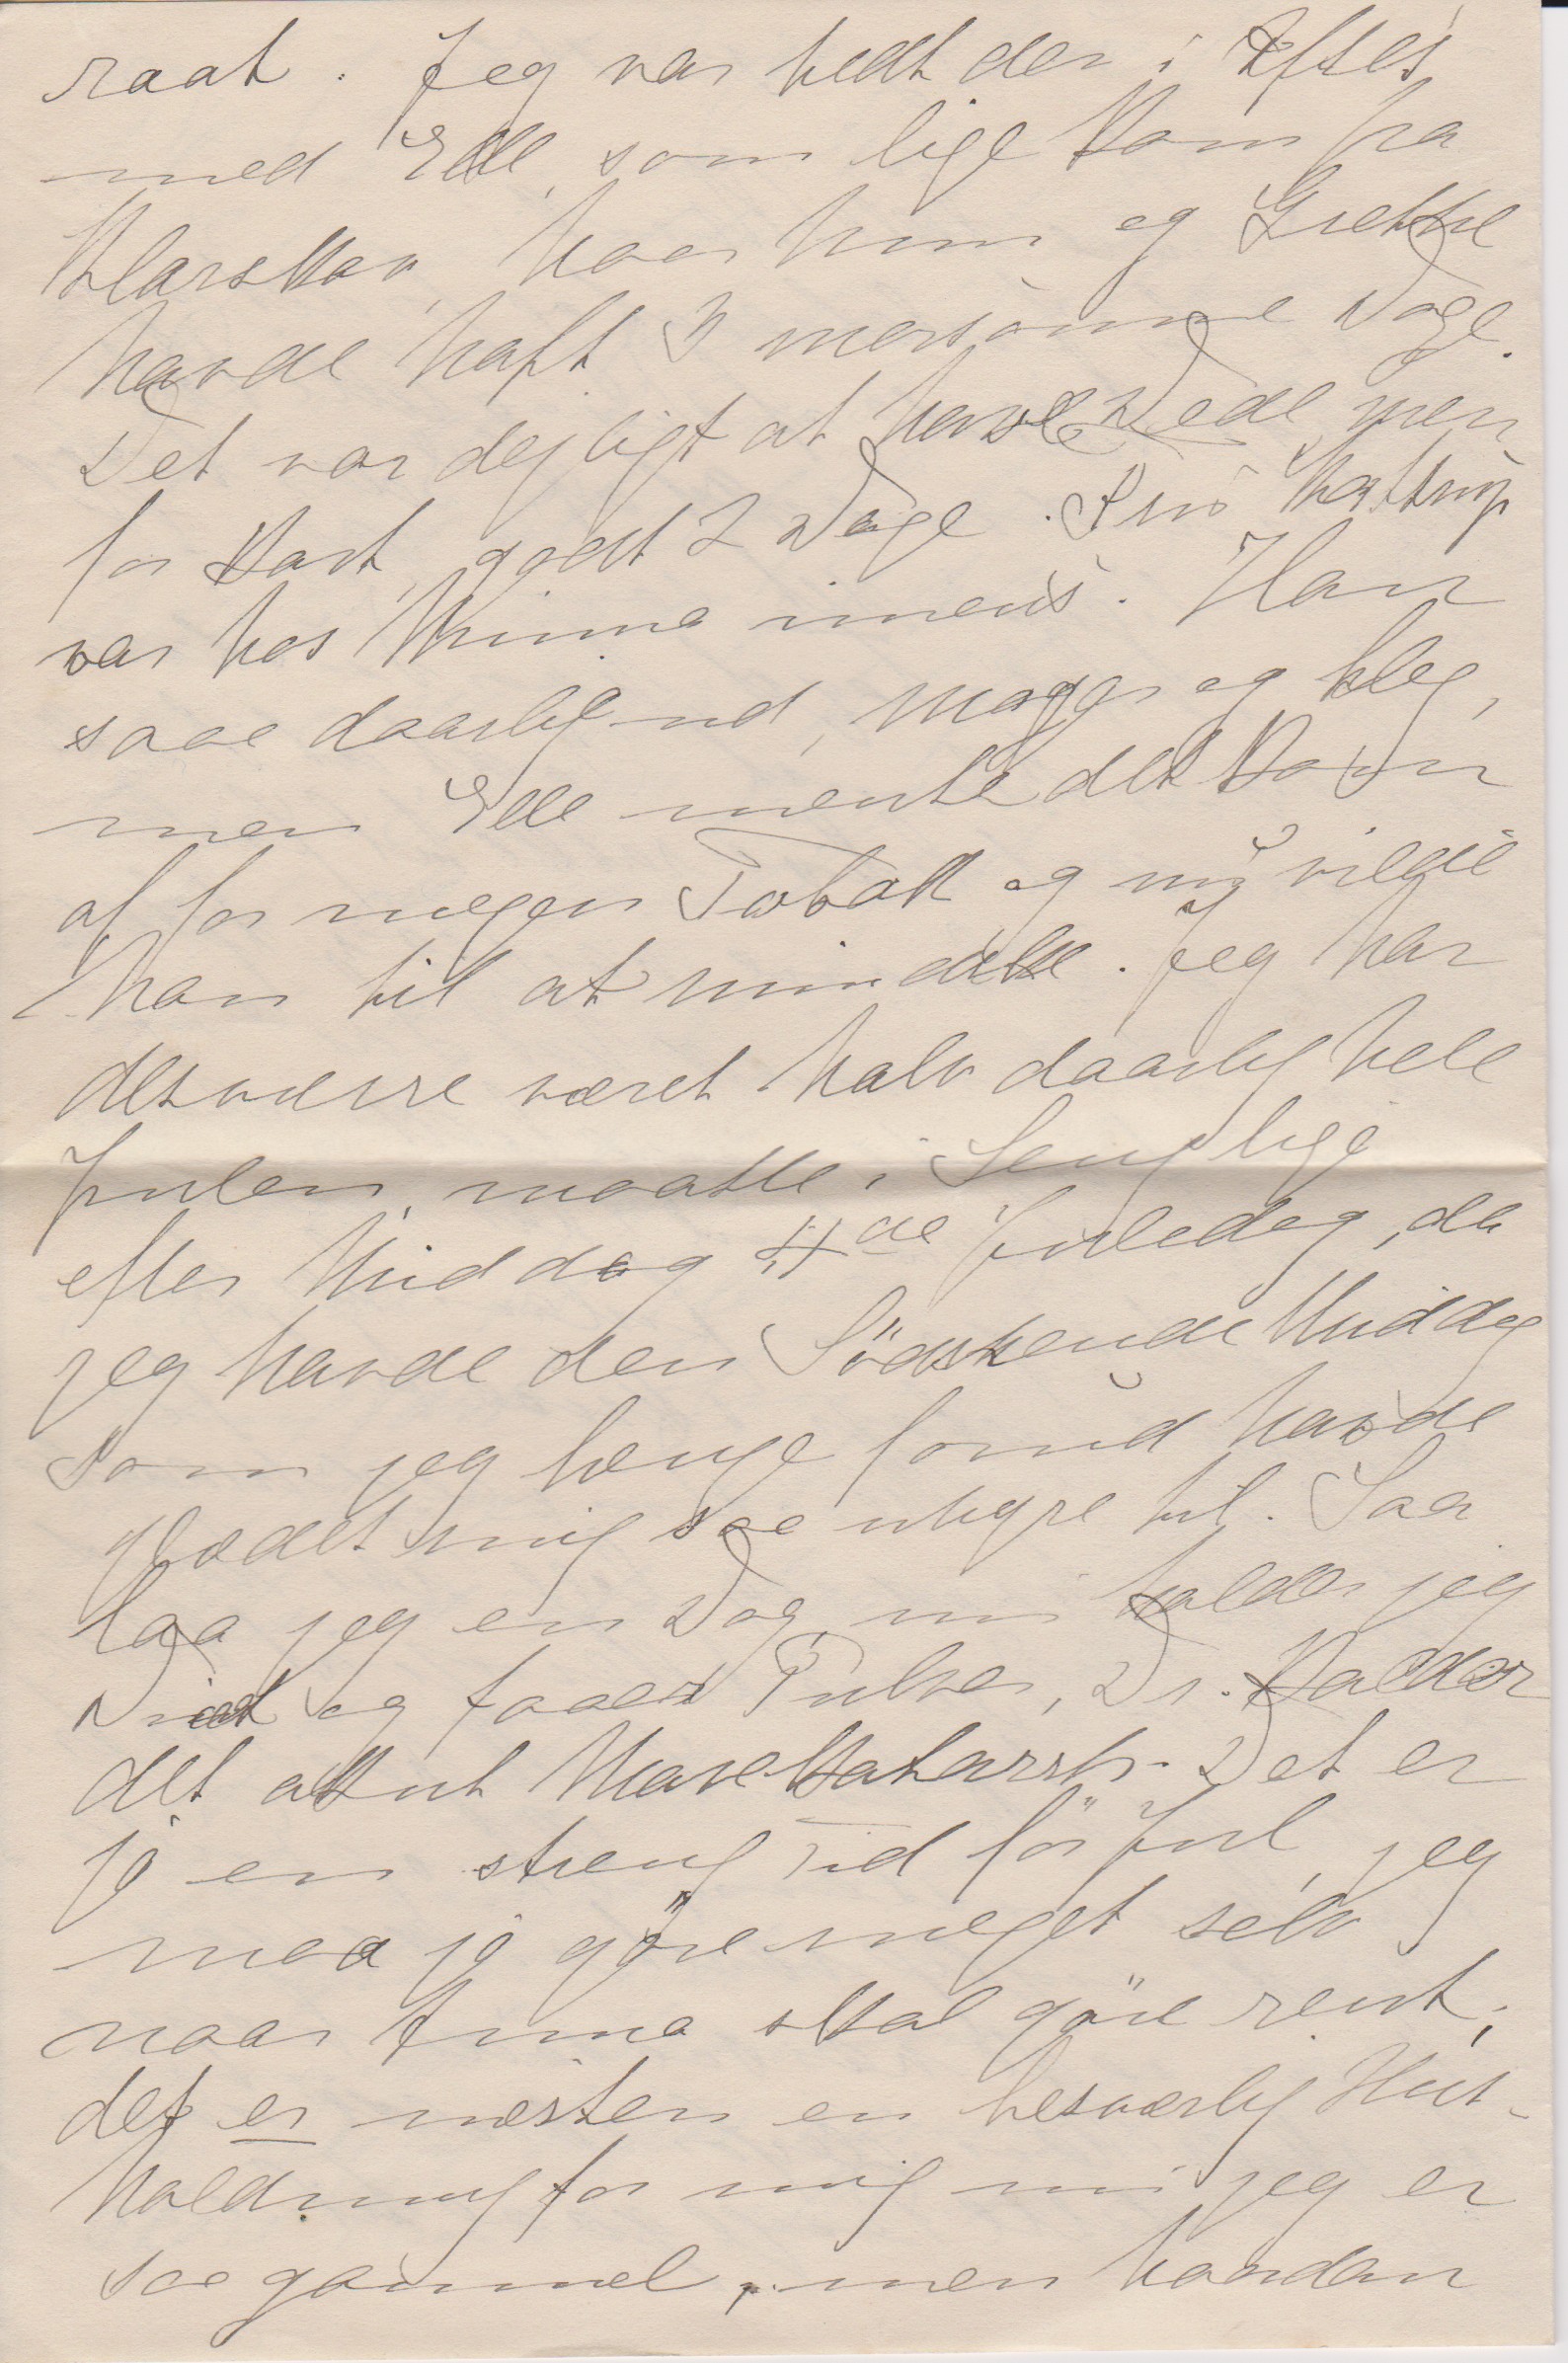 raat. Jeg var hedt der i Aftes
med Elle, som lige kom fra
Klarskov, hvor hun og Grethe
havde haft 3 morsomme Dage.
Det var dejligt at have Dede men
for kort, godt 2 Dage. Kastrup
var hos Minna imens. Han
saae daarlig ud, mager og bleg,
men Elle mente det kom
af for megen Tobak og nu vilde
han til at mindske. Jeg har
desværre været halv daarlig hele
Julen, maatte i Seng lige
efter Middag 4de Juledag, da
jeg havde den Södskende Middag
som jeg længe forud havde
glædet mig saa uhyre til. Saa
laa jeg en Dag, nu holder jeg
Diæt og faaer Pulver, Dr. kalder
det akut Mavekatarrh. Det er
jo en streng Tid för Jul, jeg
maa jo göre meget selv
naar Anna skal göre rent;
det er næsten en besværlig Hus-
holdning for mig nu jeg er
saa gammel, men hvordan